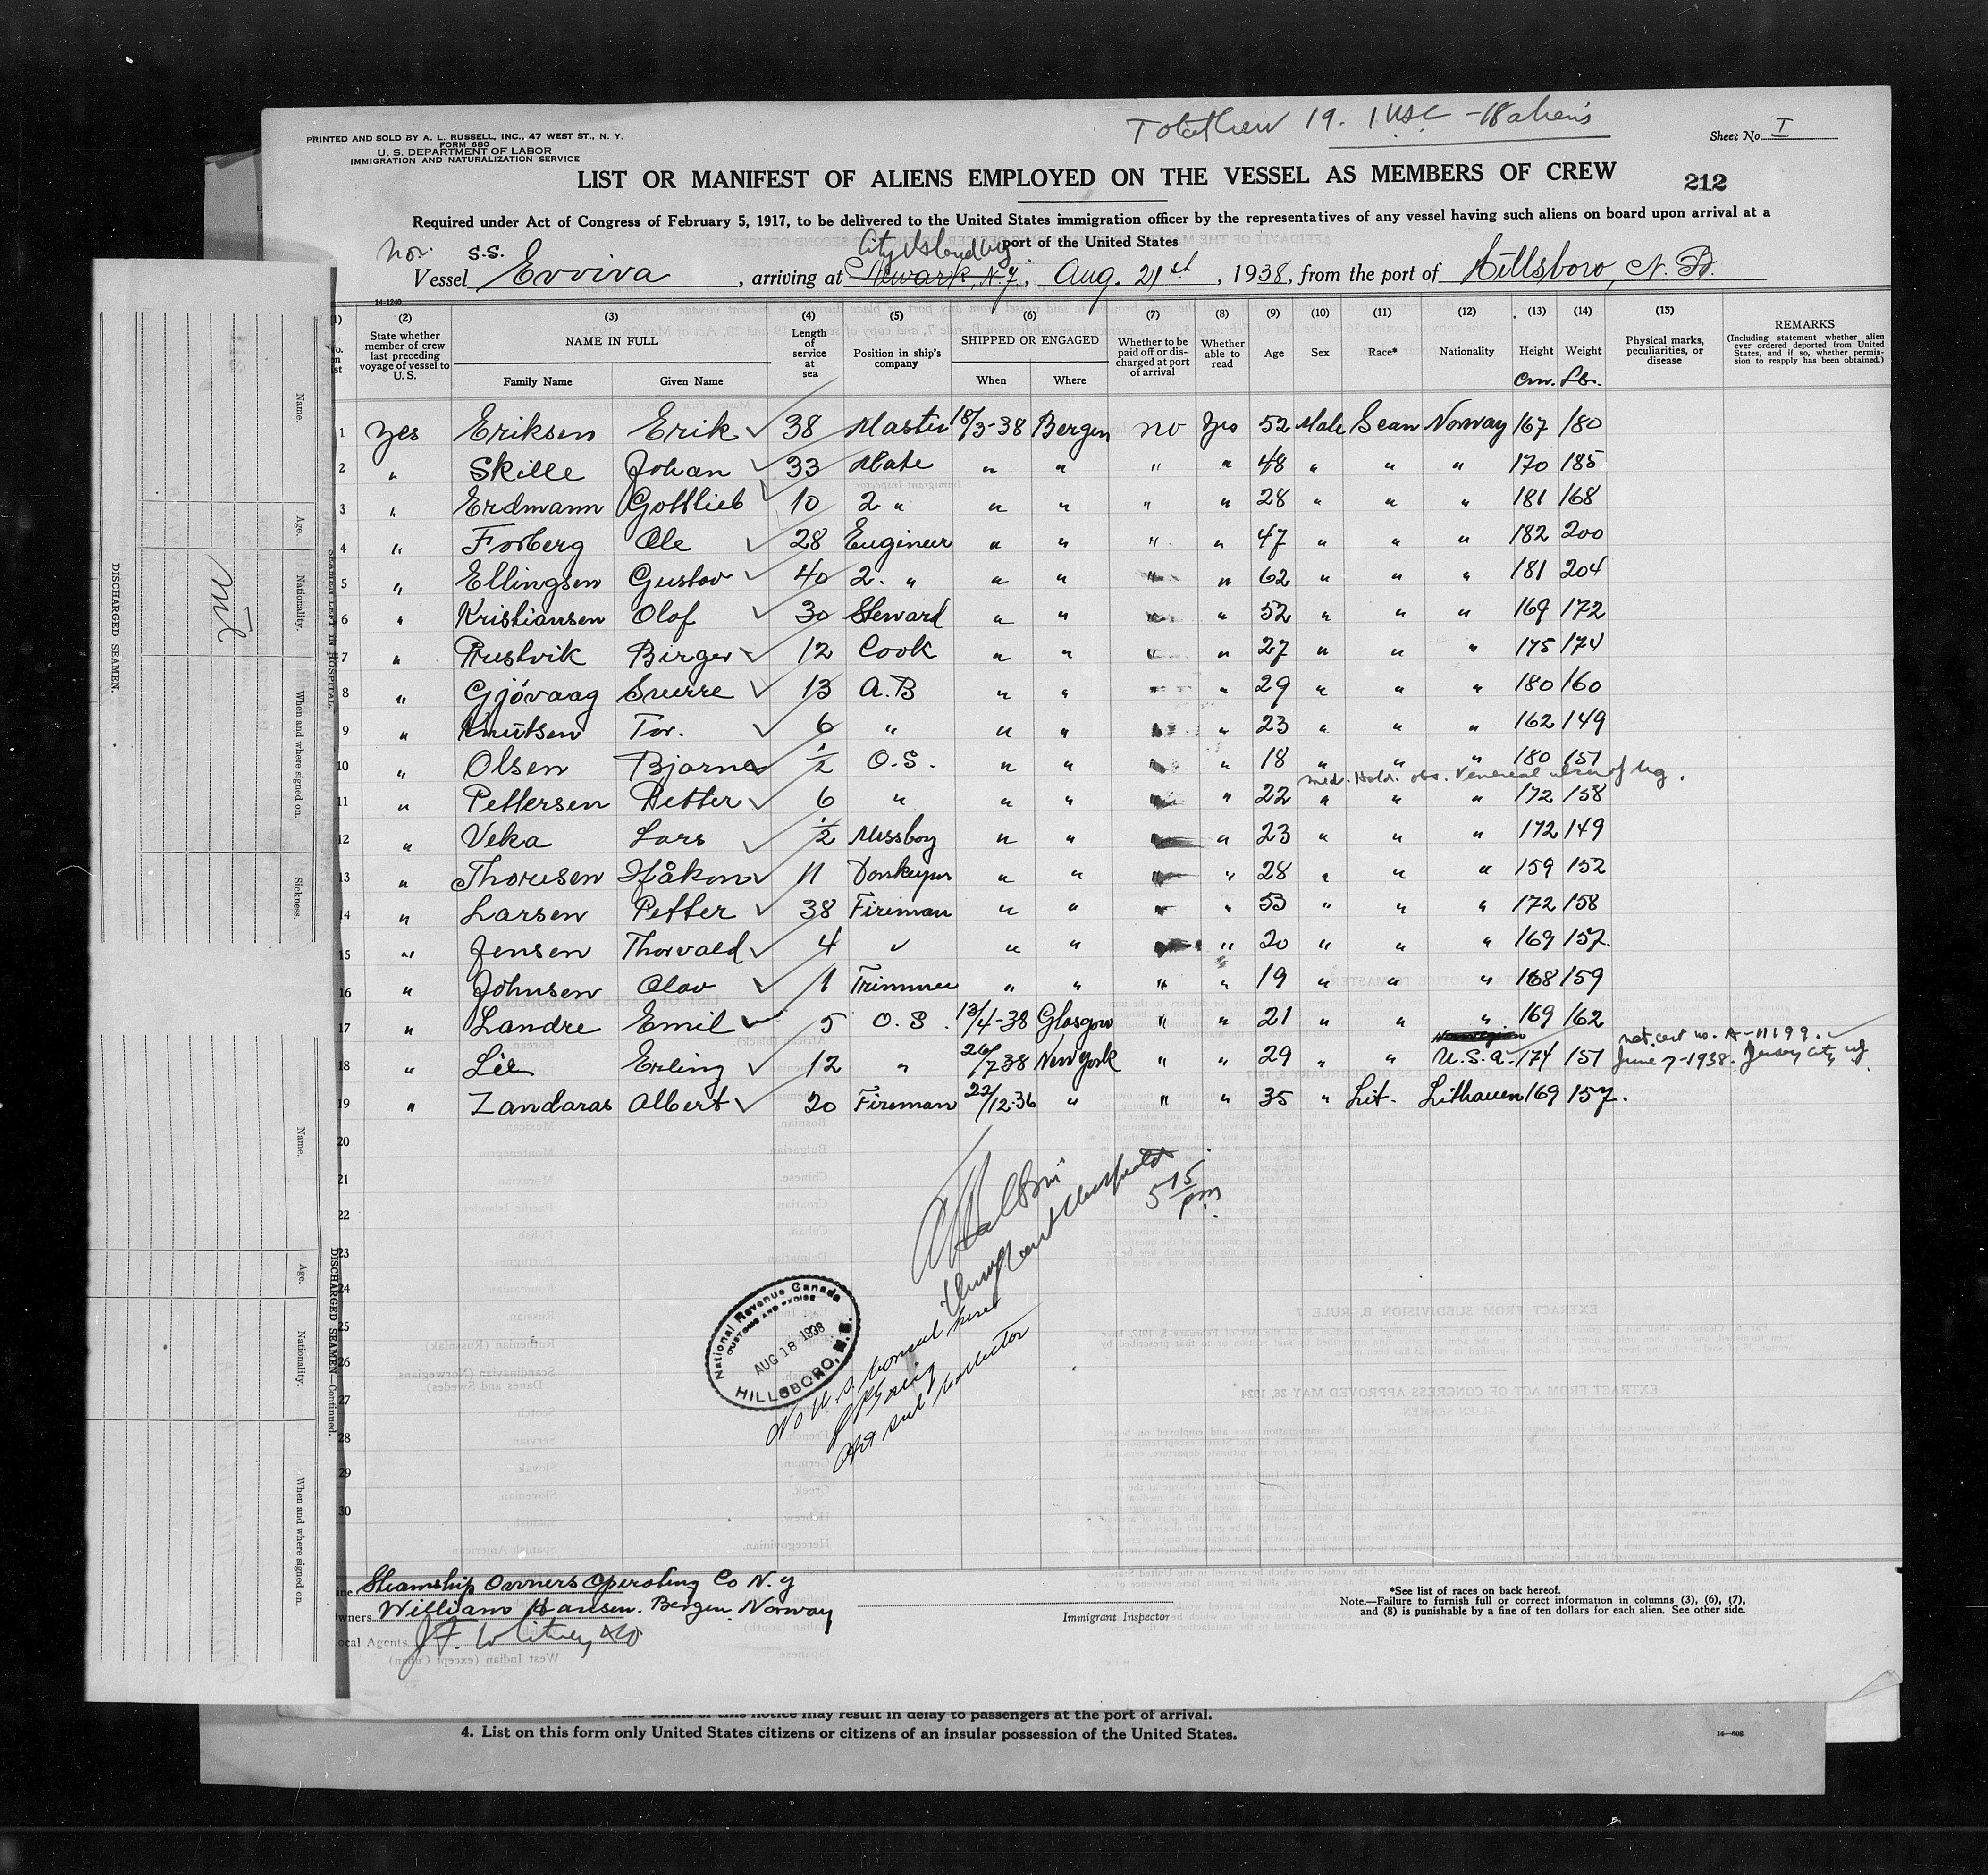 PRINTED AND SOLD BY A. L. RUSSELL, INC., 47 WEST ST., N. Y.
FORM 680
U. S. DEPARTMENT OF LABOR
IMMIGRATION AND NATURALIZATION SERVICE
Total crew 19. 1 USC - 18 aliens
Sheet No. I
LIST OR MANIFEST OF ALIENS EMPLOYED ON THE VESSEL AS MEMBERS OF CREW
212
Required under Act of Congress of February 5, 1917, to be delivered to the United States immigration officer by the representatives of any vessel having such aliens on board upon arrival at a
port of the United States
Nor. S.S. City Island Ny
Vessel Evviva, arriving at Newark, N.J., Aug. 21st, 1938, from the port of Hillsboro, N. B.
14-1240
(2) (3) (4) (5) (6) (7) (8) (9) (10) (11) (12) (13) (14) (15)
State whether member of crew last preceding voyage of vessel to U. S.
NAME IN FULL
Family Name Given Name
Length of service at sea
Position in ship's company
SHIPPED OR ENGAGED
When Where
Whether to be paid off or discharged at port of arrival
Whether able to read
Age
Sex
Race*
Nationality
Height Cm.
Weight Lb.
Physical marks, peculiarities, or disease
REMARKS
(Including statement whether alien ever ordered deported from United States, and if so, whether permission to reapply has been obtained.)
1 Yes Eriksen Erik 38 Master 18/3-38 Bergen no Yes 52 Male Scan Norway 167 180
2 " Skille Johan 33 Mate " " " " 48 " " " 170 185
3 " Erdmann Gottlieb 10 2 " " " " " 28 " " " 181 168
4 " Forberg Ole 28 Engineer " " " " 47 " " " 182 200
5 " Ellingsen Gustav 40 2. " " " " " 62 " " " 181 204
6 " Kristiansen Olof 30 Steward " " " " 52 " " " 169 172
7 " Trustvik Birger 12 Cook " " " " 27 " " " 175 174
8 " Gjövaag Sverre 13 A.B " " " " 29 " " " 180 160
9 " Knutsen Tor. 6 " " " " " 23 " " " 162 149
10 " Olsen Bjarne 1/2 O.S. " " " " 18 " " " 180 151
med. Hold. obs. Venereal ulcer of leg.
11 " Pettersen Petter 6 " " " " " 22 " " " 172 158
12 " Veka Lars 1/2 Messboy " " " " 23 " " " 172 149
13 " Thoresen Håkon 11 Donkeyman " " " " 28 " " " 159 152
14 " Larsen Petter 38 Fireman " " " " 53 " " " 172 158
15 " Jensen Thorvald 4 " " " " " 20 " " " 169 157.
16 " Johnsen Olav 1 Trimmer " " " " 19 " " " 168 159
17 " Landre Emil 5 O.S. 13/4-38 Glasgow " " 21 " " " 169 162
Norwegian nat. cert no. A-11199.
18 " Lie Erling 12 " 26/7 38 New York " " 29 " " U.S.A. 174 151 June 7-1938. Jersey City NJ.
19 " Zandaras Albert 20 Fireman 22/12-36 " " " 35 " Lit. Lithauen 169 157.
20
21
22
23
24
25
26
27
28
29
30
5 15 pm
National Revenue Canada
CUSTOMS AND EXCISE
AUG 18 1938
HILLSBORO, N.B.
No U.S. Consul here
Sub Collector
Steamship Owners Operating Co N.Y
Owners William Hansen. Bergen Norway
Local Agents J.F. Whitney & Co
Immigrant Inspector
*See list of races on back hereof.
Note.—Failure to furnish full or correct information in columns (3), (6), (7),
and (8) is punishable by a fine of ten dollars for each alien. See other side.
DISCHARGED SEAMEN.
SEAMEN LEFT IN HOSPITAL.
Name. Age. Nationality. When and where signed on. Sickness.
DISCHARGED SEAMEN—Continued.
Name. Age. Nationality. When and where signed on.
this notice may result in delay to passengers at the port of arrival.
4. List on this form only United States citizens or citizens of an insular possession of the United States.